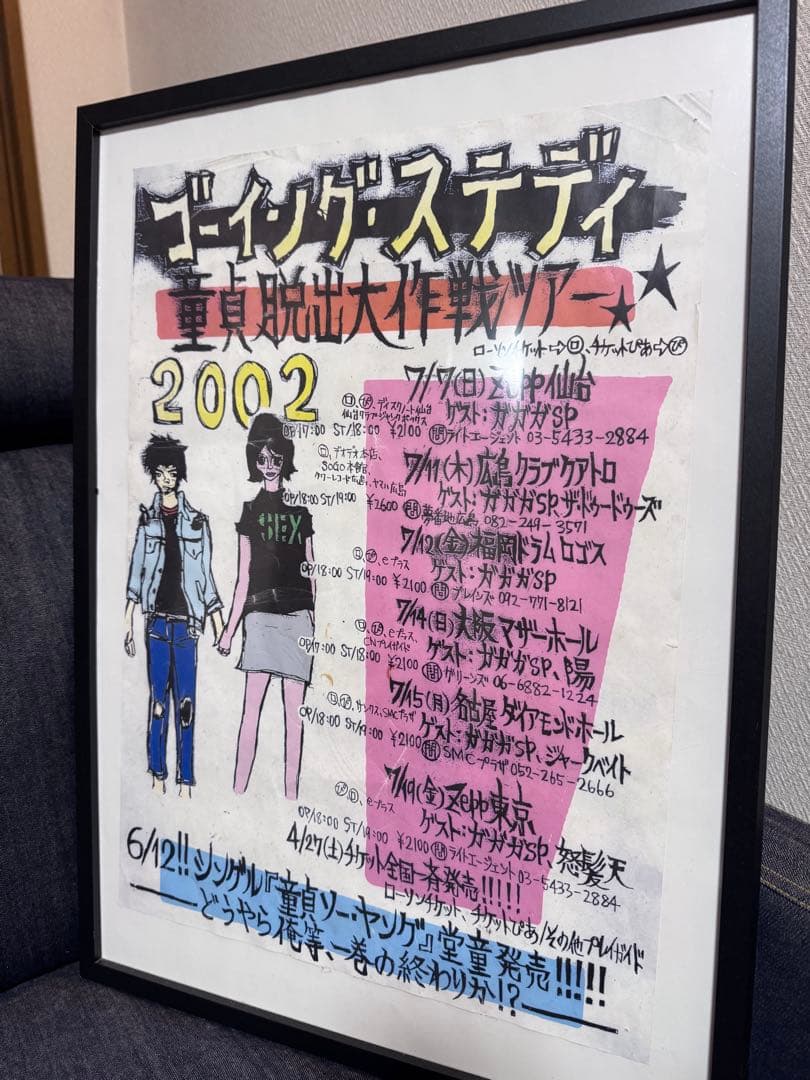 ゴーイング・ステディ
童貞脱出大作戦ツアー★★
ローソンチケット⇨ロ、チケットぴあ⇨ぴ
2002
7/7(日)Zepp仙台
ゲスト:ガガガSP
ロ、ぴ、ディスクノート仙台
仙台クラブジャンクボックス
OP/17:00 ST/18:00 ¥2100 問ライトエージェント 03-5433-2884
7/11(木)広島クラブクアトロ
ゲスト:ガガガSP、ザ・ドゥードゥーズ
ロ、デオデオ本店、
SOGO本館、
タワーレコード広島、ヤマハ広島
OP/18:00 ST/19:00 ¥2600 問夢番地広島 082-249-3571
7/12(金)福岡ドラムロゴス
ゲスト:ガガガSP
ロ、ぴ、eプラス
OP/18:00 ST/19:00 ¥2100 問ブレインズ 092-771-8121
7/14(日)大阪マザーホール
ゲスト:ガガガSP、陽
ロ、ぴ、eプラス、
CNプレイガイド
OP/17:00 ST/18:00 ¥2100 問グリーンズ 06-6882-1224
7/15(月)名古屋ダイアモンドホール
ゲスト:ガガガSP、ジャークベイト
ロ、ぴ、サンクス、SMCプラザ
OP/18:00 ST/19:00 ¥2100 問SMCプラザ 052-265-2666
7/19(金)Zepp東京
ゲスト:ガガガSP、怒髪天
ぴ、ロ、eプラス
OP/18:00 ST/19:00 ¥2100 問ライトエージェント 03-5433-2884
4/27(土)チケット全国一斉発売!!!!!
ローソンチケット、チケットぴあ/その他プレイガイド
6/12!!シングル『童貞ソー・ヤング』堂童発売!!!!!
どうやら俺等、一巻の終わりか!?
SEX